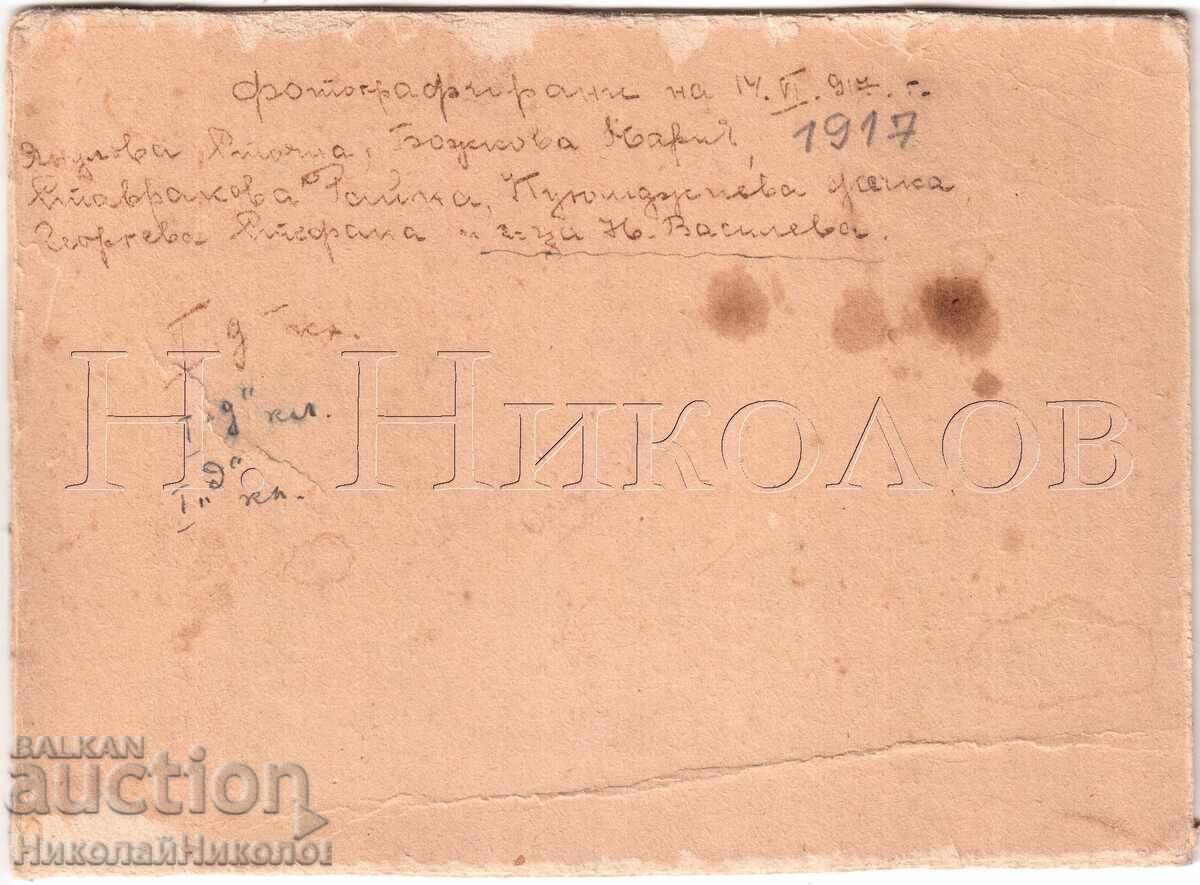 фотографирани на 14. VI. 917. г.
1917
Янулова Стойна, Божкова Мария,
Ставракова Райка, Куюмджиева
Георгева Стефана и г-ца Н. Василева.
I д кл.
I "д" кл.
I "Д" кл.
Н. Николов
BALKAN
auction
НиколайНиколов